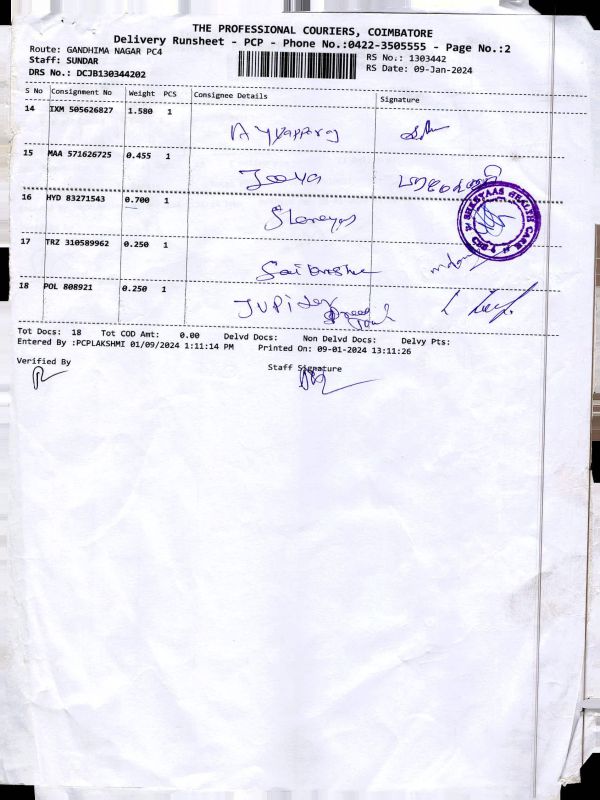 THE PROFESSIONAL COURIERS, COIMBATORE
Delivery Runsheet - PCP - Phone No.:0422-3505555 - Page No.:2
Route: GANDHIMA NAGAR PC4
RS No.: 1303442
Staff: SUNDAR
RS Date: 09-Jan-2024
DRS No.: DCJB130344202
S No Consignment No Weight PCS Consignee Details Signature
14 IXM 505626827 1.580 1
15 MAA 571626725 0.455 1
Jeeva
16 HYD 83271543 0.700 1
SHREYAAS HEALTH CARE
17 TRZ 310589962 0.250 1
18 POL 808921 0.250 1
JUPiter
Tot Docs: 18 Tot COD Amt: 0.00 Delvd Docs: Non Delvd Docs: Delvy Pts:
Entered By :PCPLAKSHMI 01/09/2024 1:11:14 PM Printed On: 09-01-2024 13:11:26
Verified By
Staff Signature